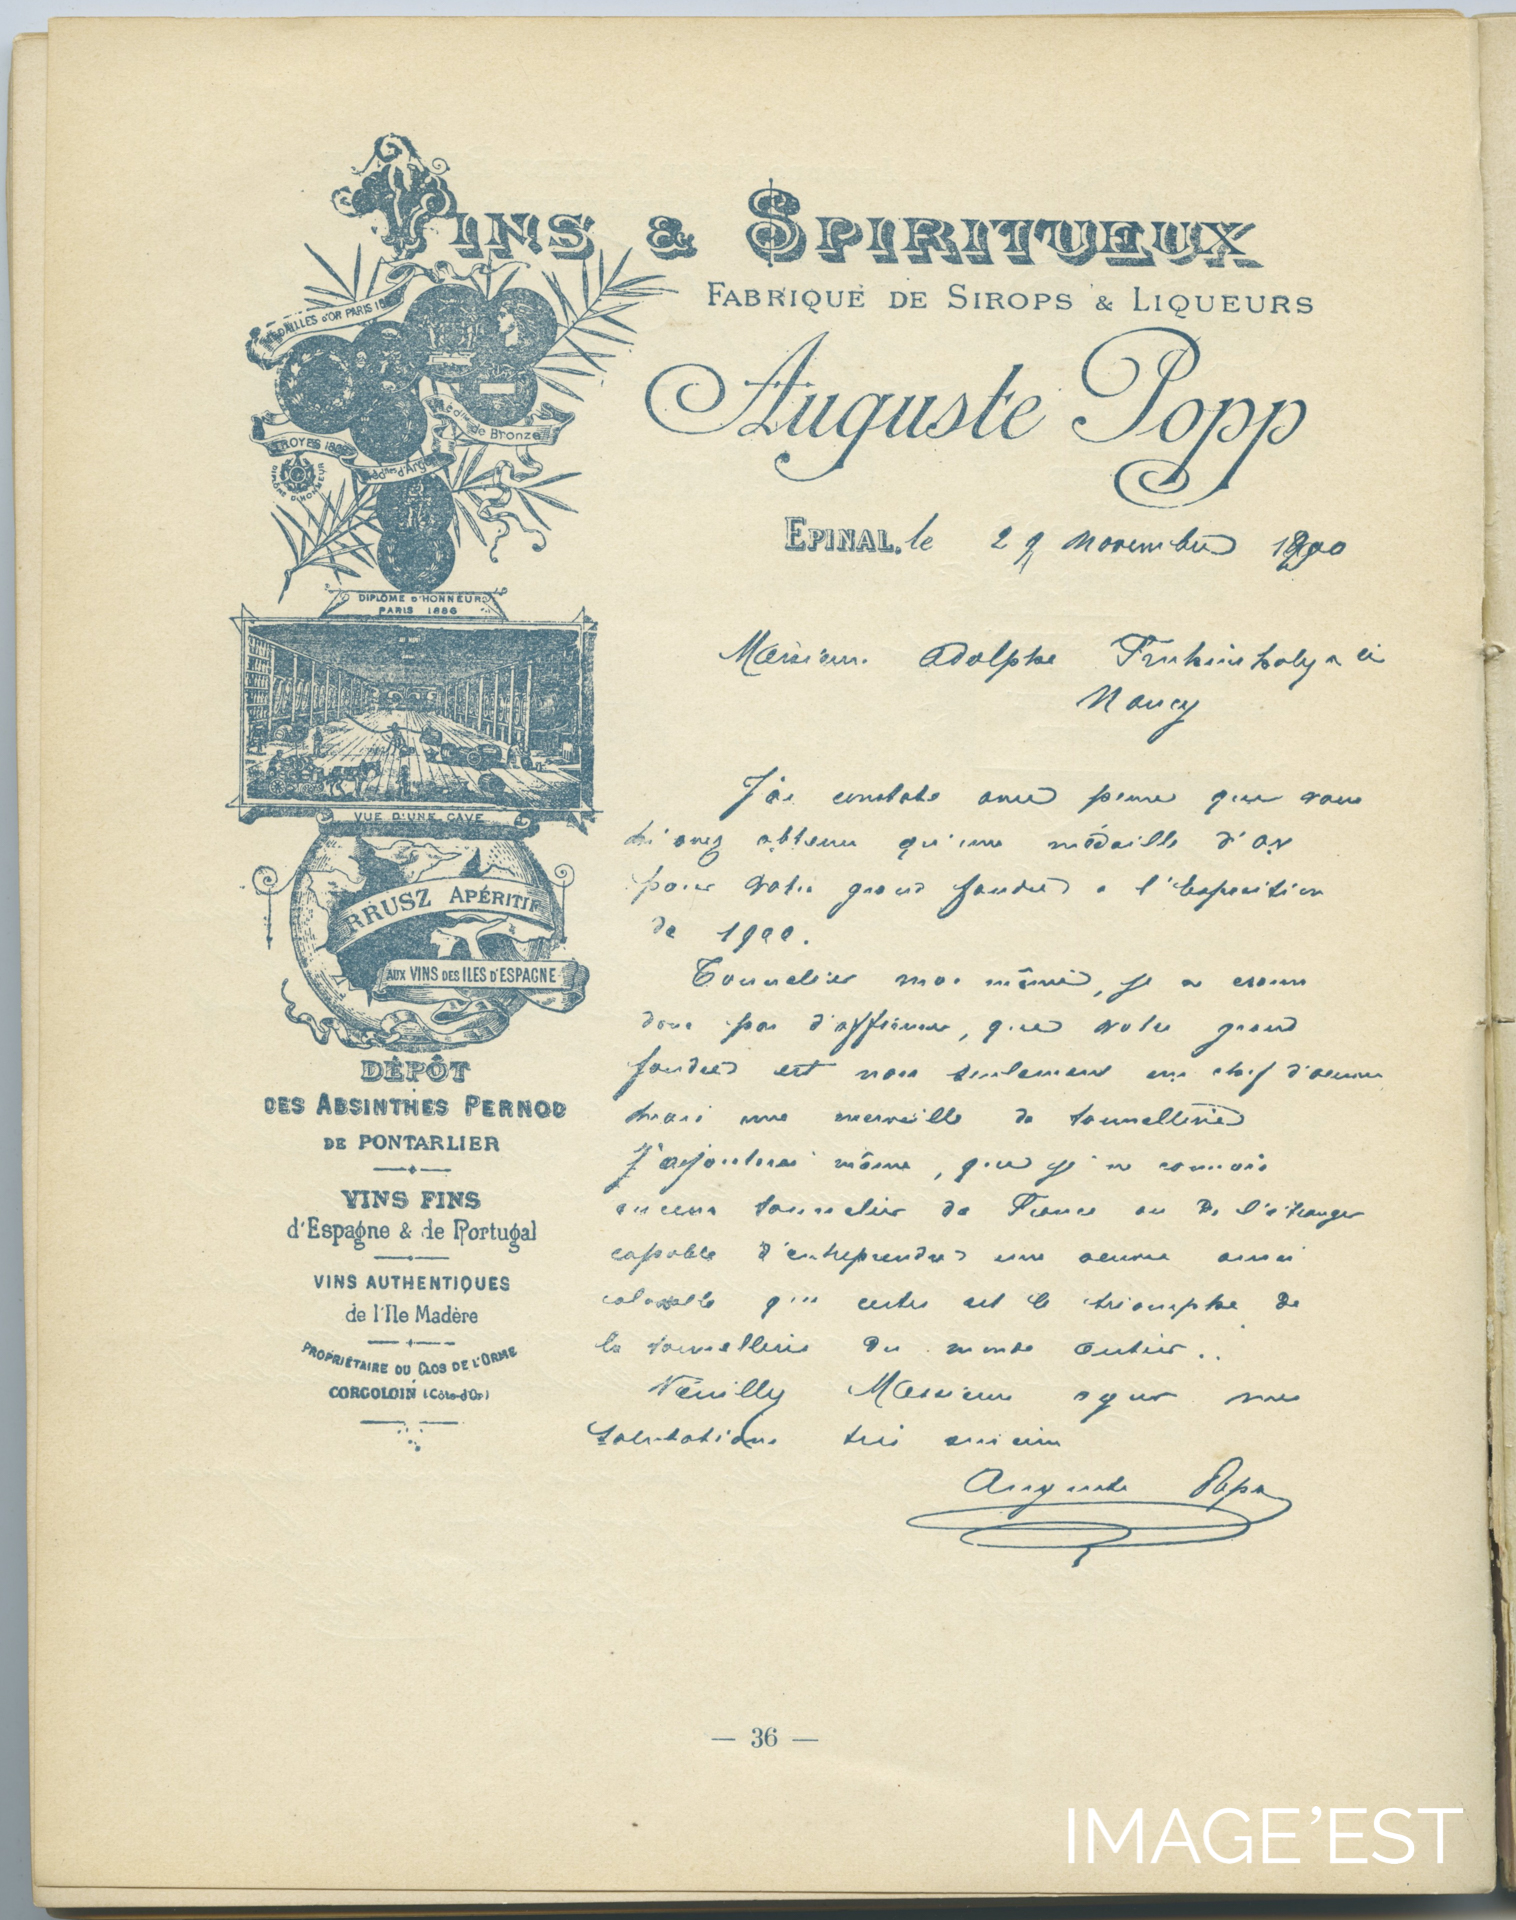 VINS & SPIRITUEUX
FABRIQUE DE SIROPS & LIQUEURS
Auguste Popp
EPINAL, le 29 novembre 1900
MÉDAILLES D'OR PARIS
Médlles de Bronze
TROYES 188
Médlles d'Argent
DIPLÔME D'HONNEUR
DIPLÔME D'HONNEUR
PARIS 1886
VUE D'UNE CAVE
RRUSZ APÉRITIF
AUX VINS DES ILES D'ESPAGNE
DÉPÔT
DES ABSINTHES PERNOD
DE PONTARLIER
VINS FINS
d'Espagne & de Portugal
VINS AUTHENTIQUES
de l'Ile Madère
PROPRIÉTAIRE DU CLOS DE L'ORME
CORGOLOIN (Côte-d'Or)
Messieurs Adolphe Fruhinsholz
Nancy
J'ai constaté avec peine que vous
n'avez obtenu qu'une médaille d'or
pour votre grand foudre a l'Exposition
de 1900.
Tonnelier moi même, je
donc pas d'affirmer, que votre grand
foudre est non seulement un chef d'oeuvre
mais une merveille de tonnellerie
J'ajouterai même, que je ne connais
aucun tonnelier de France ou de l'étranger
capable d'entreprendre une oeuvre aussi
colossale qui certes est le triomphe de
la tonnellerie du monde entier..
Veuillez Messieurs mes
salutations très
Auguste Popp
— 36 —
IMAGE'EST